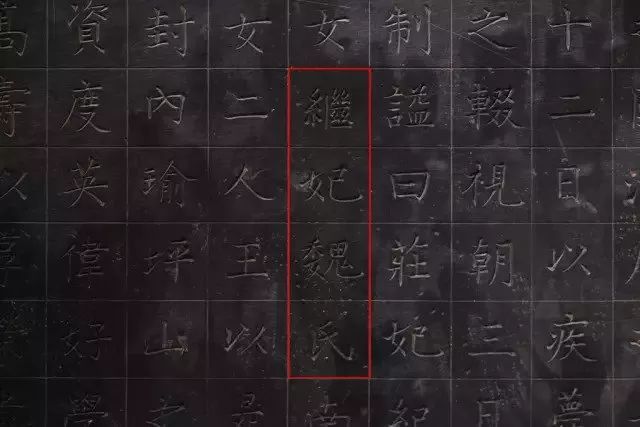 十二日以疾薨
之輟視朝三日
制謚曰莊妃
女繼妃魏氏南
女二人王以
封內瑜坪山之
資度英偉好學